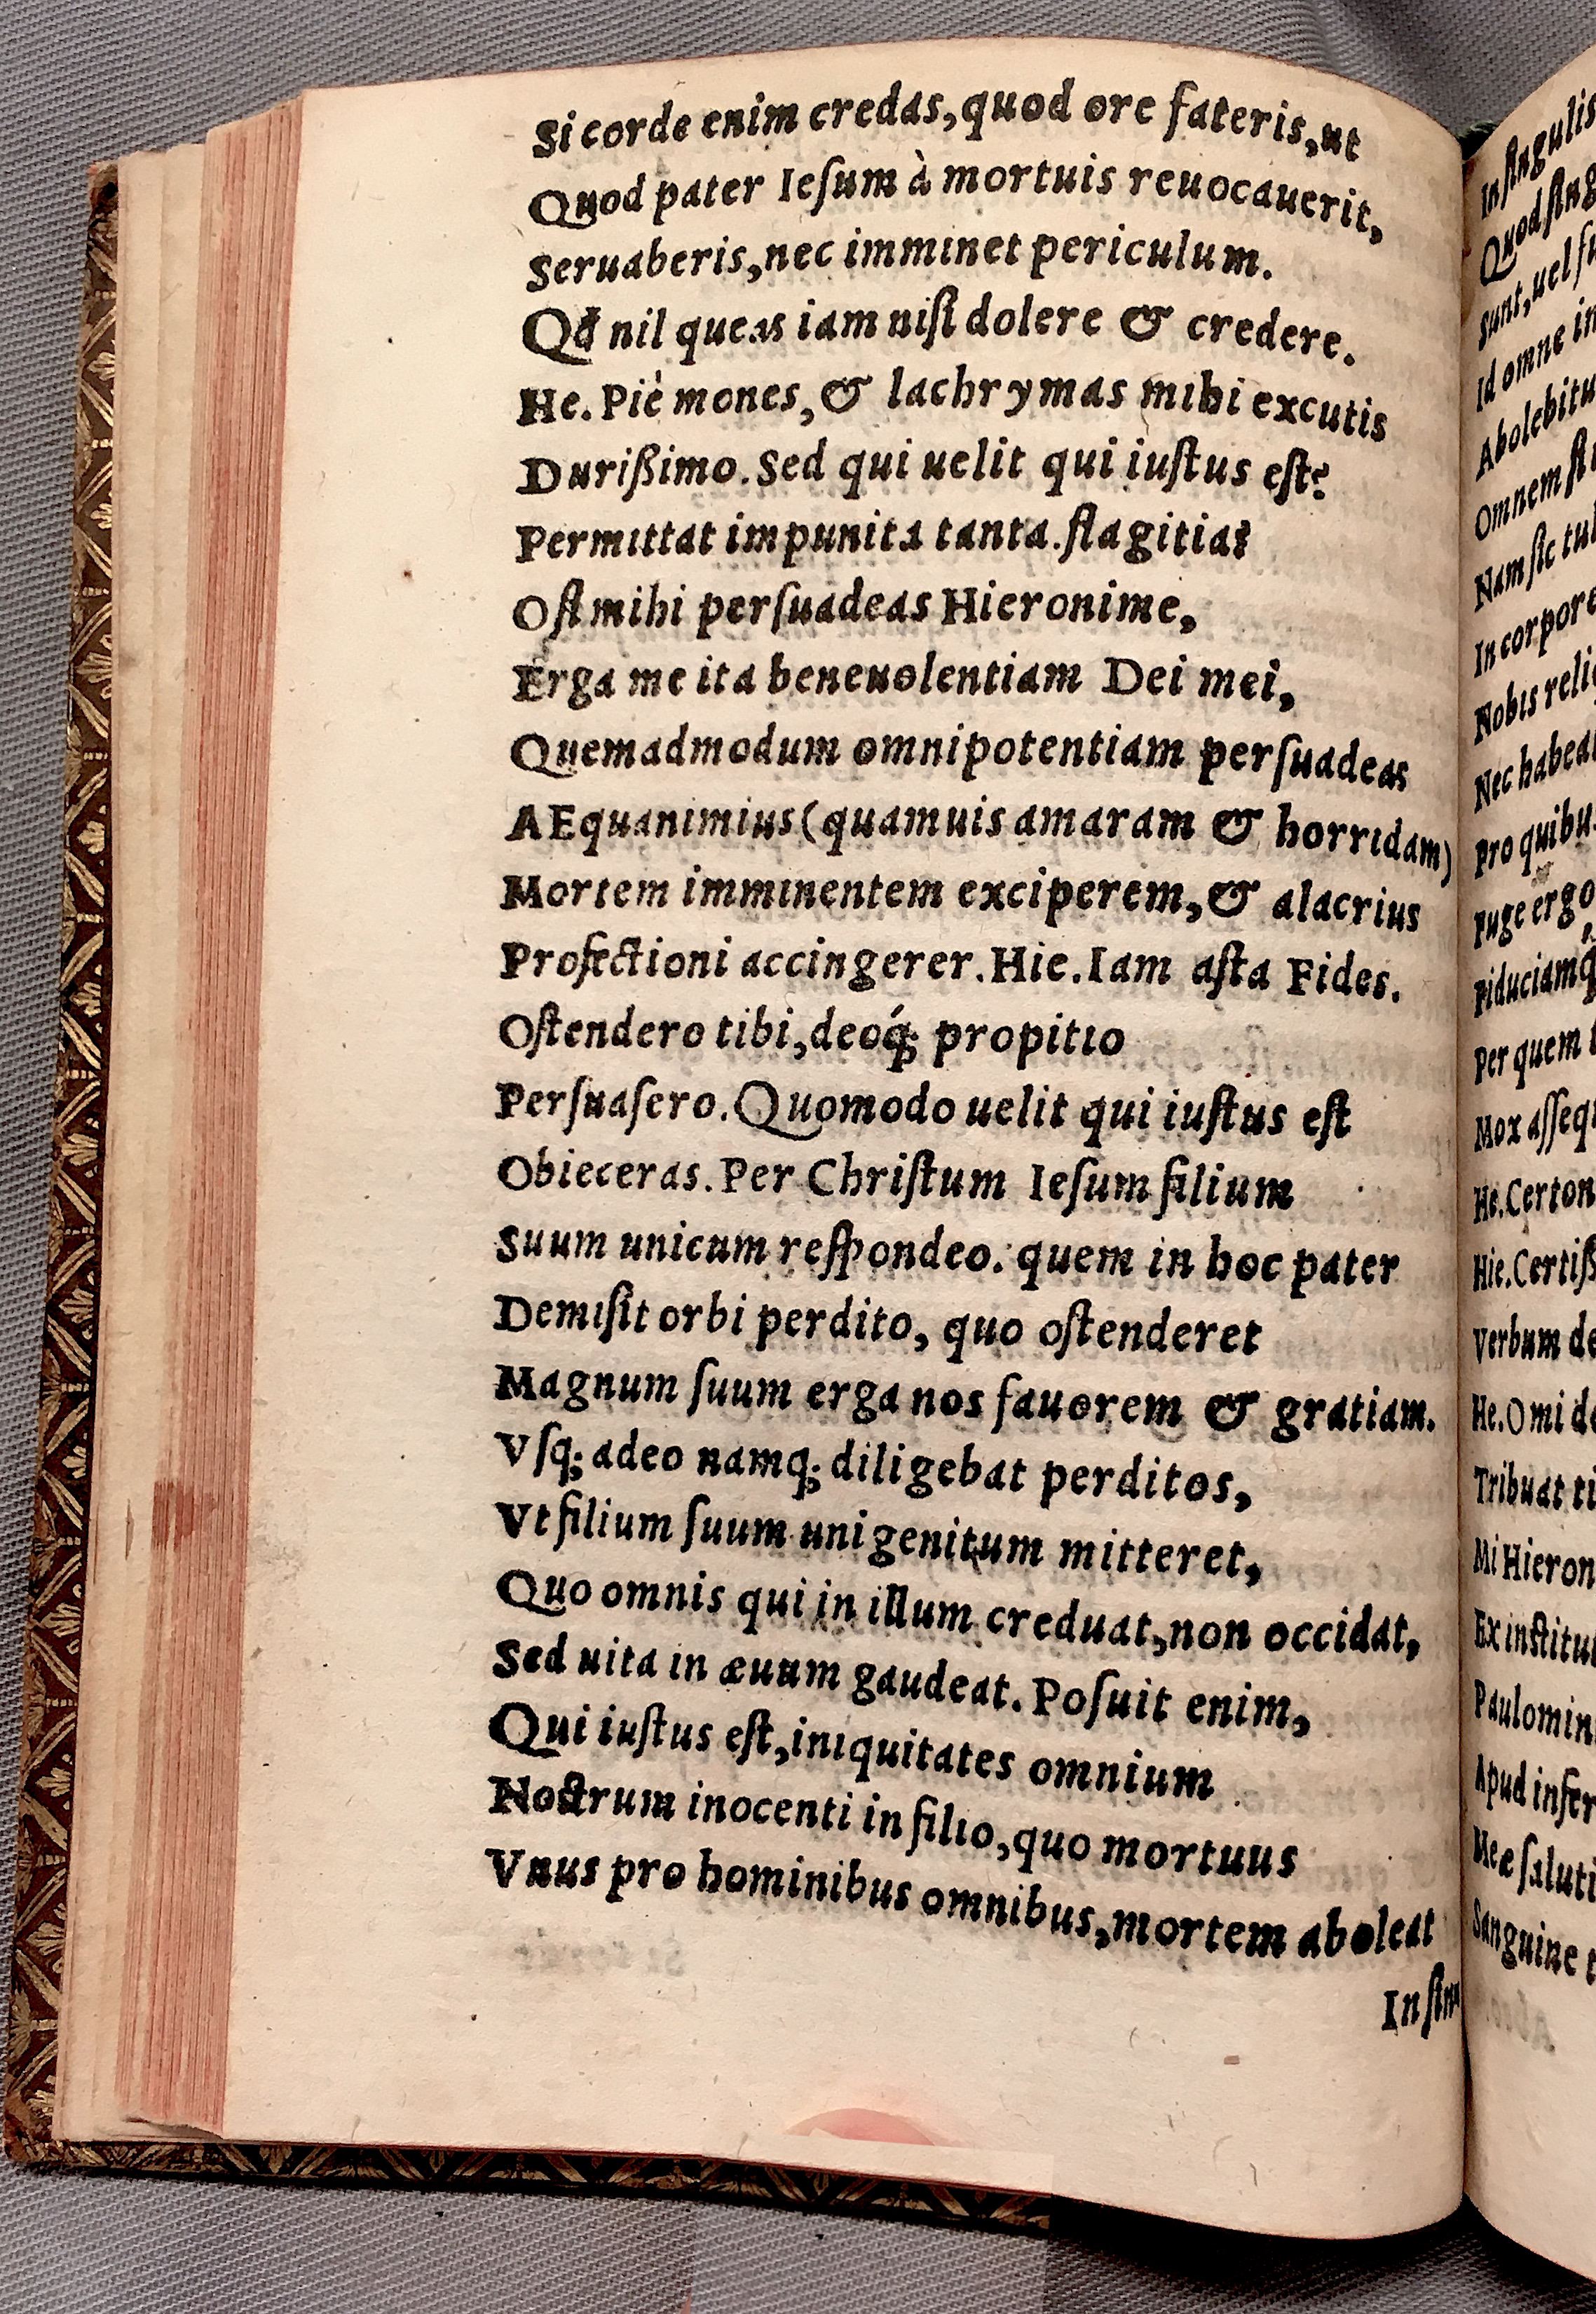 Si corde enim credas, quod ore fateris, ut
Quod pater Ieſum à mortuis reuocauerit,
Seruaberis, nec imminet periculum.
Qđ nil queas iam niſi dolere & credere.
He. Piè mones, & lachrymas mihi excutis
Durißimo. Sed qui uelit qui iuſtus eſt?
Permittat impunita tanta. flagitia?
O ſi mihi perſuadeas Hieronime,
Erga me ita beneuolentiam Dei mei,
Quemadmodum omnipotentiam perſuadeas
AEquanimius (quamuis amaram & horridam)
Mortem imminentem exciperem, & alacrius
Profectioni accingerer. Hie. Iam aſta Fides.
Oſtendero tibi, deoq́; propitio
Perſuaſero. Quomodo uelit qui iuſtus eſt
Obieceras. Per Chriſtum Ieſum filium
Suum unicum reſpondeo. quem in hoc pater
Demiſit orbi perdito, quo oſtenderet
Magnum ſuum erga nos fauorem & gratiam.
Vſq; adeo namq; diligebat perditos,
Vt filium ſuum unigenitum mitteret,
Quo omnis qui in illum creduat, non occidat,
Sed uita in æuum gaudeat. Poſuit enim,
Qui iuſtus eſt, iniquitates omnium
Noſtrum inocenti in filio, quo mortuus
Vnus pro hominibus omnibus, mortem aboleat
In ſin
In ſingulis
Quod ſing
Sunt, uel ſu
Id omne in
Abolebitu
Omnem ſti
Nam ſic tul
In corpore
Nobis reli
Nec habea
Pro quibu
Fuge ergo
Fiduciamq
Per quem
Mox aſſequ
He. Certon
Hie. Certiß
Verbum de
He. O mi de
Tribuat ti
Mi Hieron
Ex inſtitu
Paulomin
Apud infer
Meæ ſaluti
Sanguine